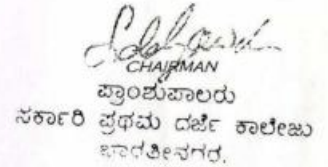 CHAIRMAN
ಪ್ರಾಂಶುಪಾಲರು
ಸರ್ಕಾರಿ ಪ್ರಥಮ ದರ್ಜೆ ಕಾಲೇಜು
ಭಾರತೀನಗರ.